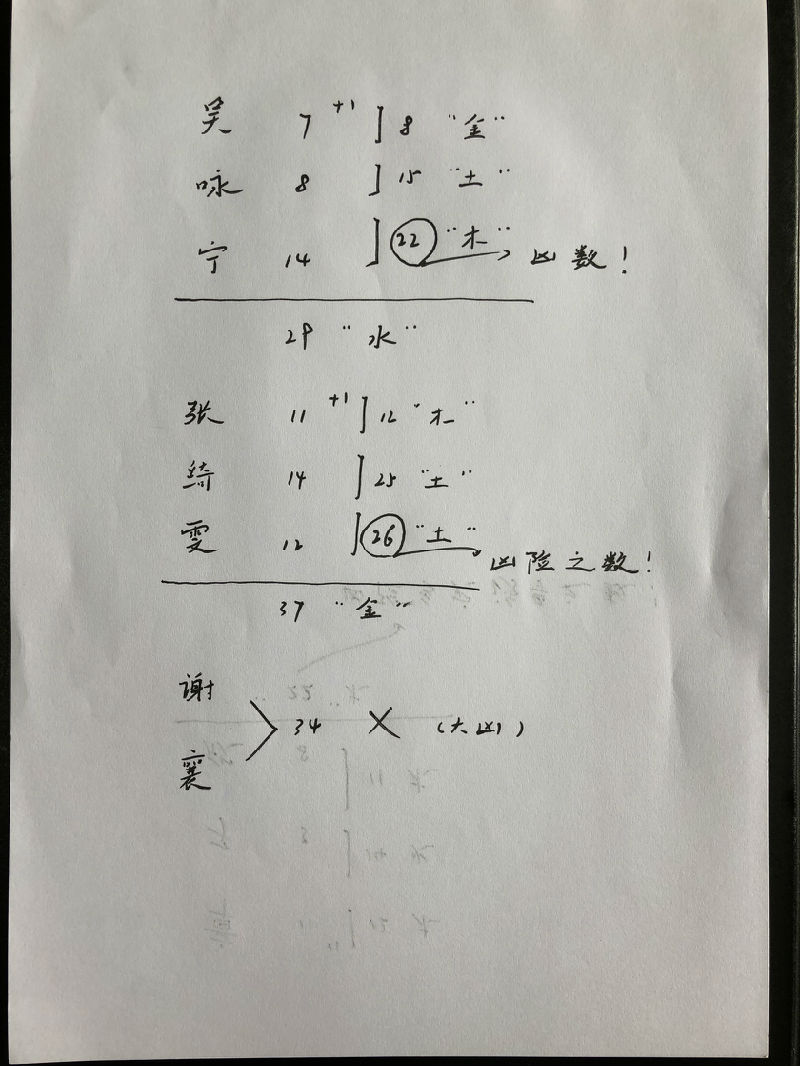 吴 7 +1 ] 8 "金"
咏 8 ] 15 "土"
宁 14 ] 22 "木" 凶数!
29 "水"
张 11 +1 ] 12 "木"
绮 14 ] 25 "土"
雯 12 ] 26 "土" 凶险之数!
37 "金"
谢
34 X (大凶)
襄